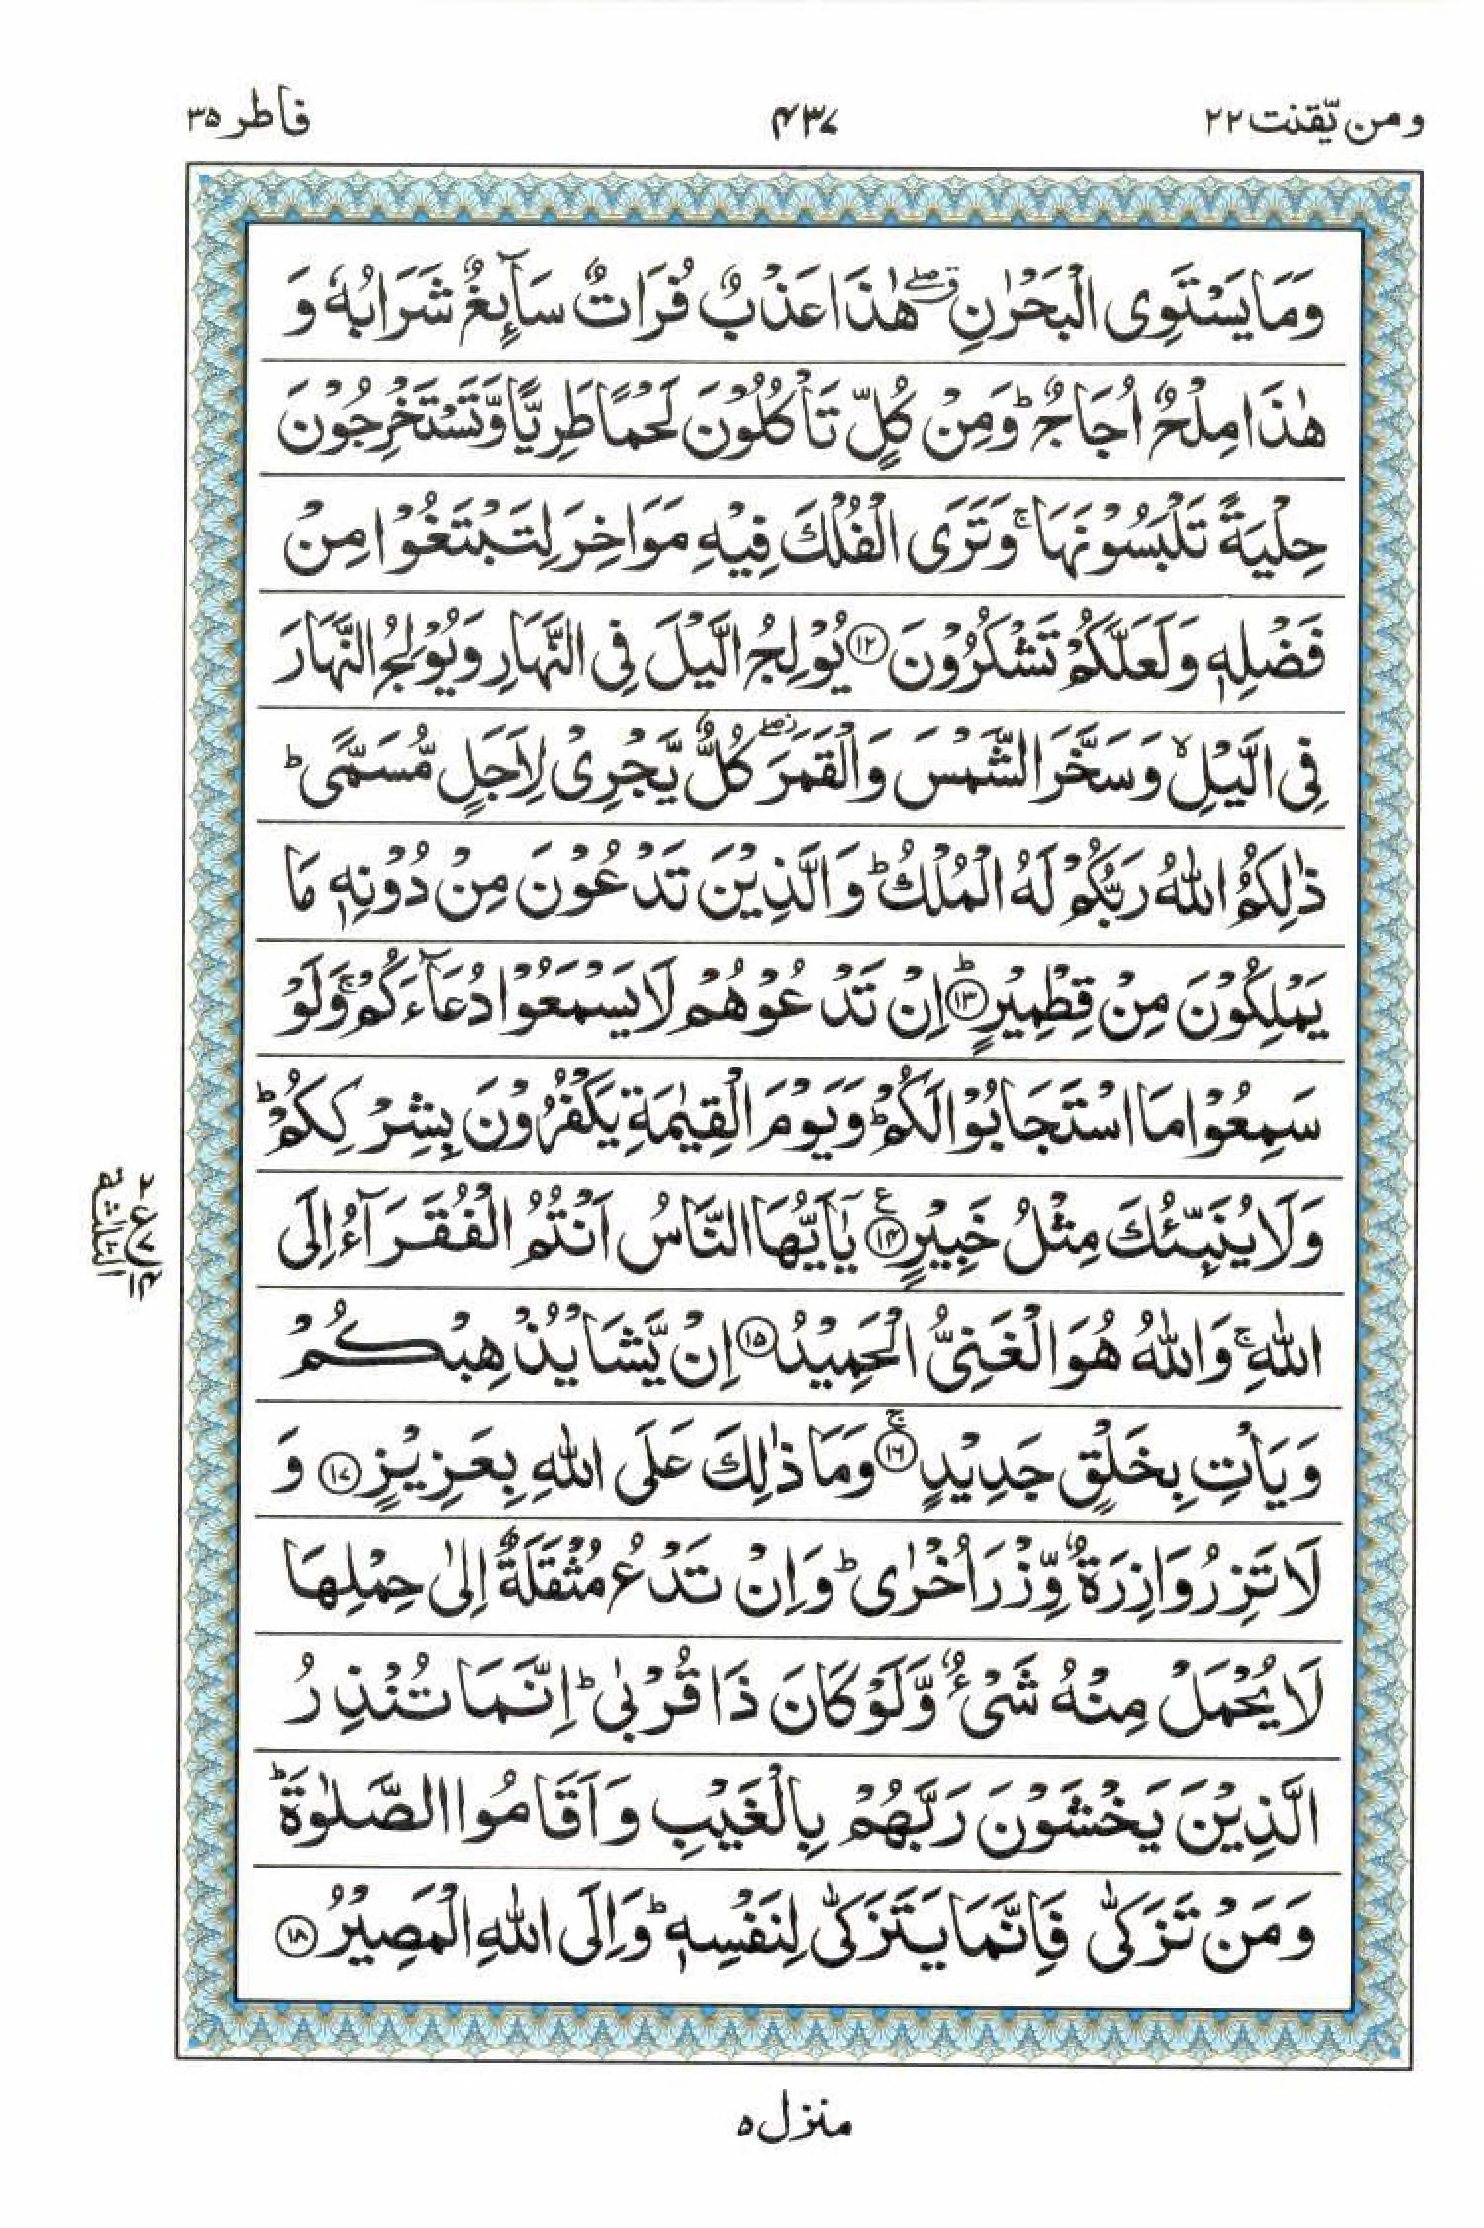 ومن یّقنت ۲۲
۴۳۷
فاطر ۳۵
وَمَا يَسْتَوِى الْبَحْرٰنِ ۖۗ هٰذَا عَذْبٌ فُرَاتٌ سَآئِغٌ شَرَابُهٗ وَ
هٰذَا مِلْحٌ اُجَاجٌ ؕ وَمِنْ كُلٍّ تَاْكُلُوْنَ لَحْمًا طَرِيًّا وَّتَسْتَخْرِجُوْنَ
حِلْيَةً تَلْبَسُوْنَهَا ۚ وَتَرَى الْفُلْكَ فِيْهِ مَوَاخِرَ لِتَبْتَغُوْا مِنْ
فَضْلِهٖ وَلَعَلَّكُمْ تَشْكُرُوْنَ ۝۱۲ يُوْلِجُ الَّيْلَ فِى النَّهَارِ وَيُوْلِجُ النَّهَارَ
فِى الَّيْلِ ۙ وَسَخَّرَ الشَّمْسَ وَالْقَمَرَ ۖ٘ كُلٌّ يَّجْرِىْ لِاَجَلٍ مُّسَمًّى ؕ
ذٰلِكُمُ اللّٰهُ رَبُّكُمْ لَهُ الْمُلْكُ ؕ وَالَّذِيْنَ تَدْعُوْنَ مِنْ دُوْنِهٖ مَا
يَمْلِكُوْنَ مِنْ قِطْمِيْرٍ ؕ۝۱۳ اِنْ تَدْعُوْهُمْ لَا يَسْمَعُوْا دُعَآءَكُمْ ۚ وَلَوْ
سَمِعُوْا مَا اسْتَجَابُوْا لَكُمْ ؕ وَيَوْمَ الْقِيٰمَةِ يَكْفُرُوْنَ بِشِرْكِكُمْ ؕ
وَلَا يُنَبِّئُكَ مِثْلُ خَبِيْرٍ ۝۱۴ ع يٰۤاَيُّهَا النَّاسُ اَنْتُمُ الْفُقَرَآءُ اِلَى
اللّٰهِ ۚ وَاللّٰهُ هُوَ الْغَنِىُّ الْحَمِيْدُ ۝۱۵ اِنْ يَّشَاْ يُذْهِبْكُمْ
وَيَاْتِ بِخَلْقٍ جَدِيْدٍ ۚ۝۱۶ وَمَا ذٰلِكَ عَلَى اللّٰهِ بِعَزِيْزٍ ۝۱۷ وَ
لَا تَزِرُ وَازِرَةٌ وِّزْرَ اُخْرٰى ؕ وَاِنْ تَدْعُ مُثْقَلَةٌ اِلٰى حِمْلِهَا
لَا يُحْمَلْ مِنْهُ شَىْءٌ وَّلَوْ كَانَ ذَا قُرْبٰى ؕ اِنَّمَا تُنْذِرُ
الَّذِيْنَ يَخْشَوْنَ رَبَّهُمْ بِالْغَيْبِ وَاَقَامُوا الصَّلٰوةَ ؕ
وَمَنْ تَزَكّٰى فَاِنَّمَا يَتَزَكّٰى لِنَفْسِهٖ ؕ وَاِلَى اللّٰهِ الْمَصِيْرُ ۝۱۸
۲
ع ۷
۱۴
منزل ۵